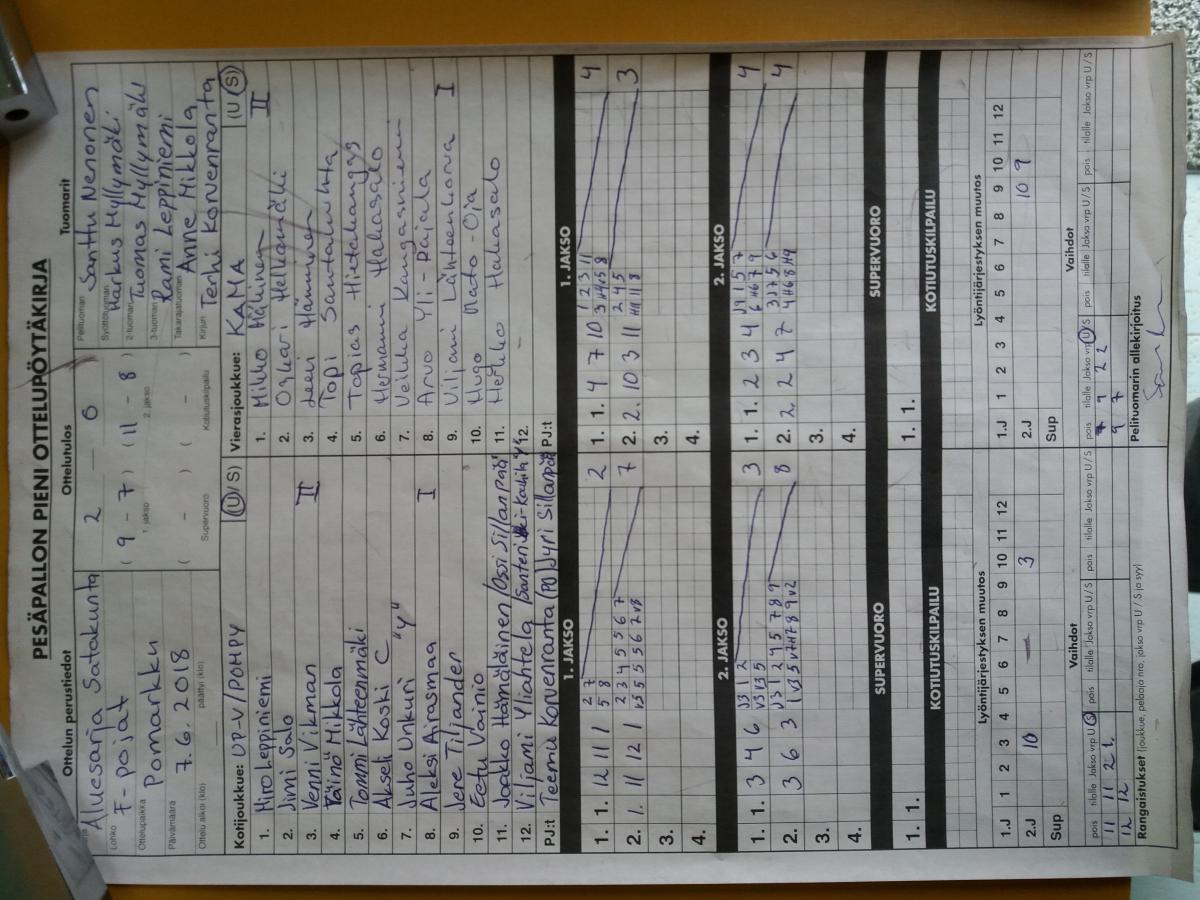 PESÄPALLON PIENI OTTELUPÖYTÄKIRJA
Ottelun perustiedot
Ottelutulos
Tuomarit
Aluesarja Satakunta
Lohko F-pojat
Ottelupaikka Pomarkku
Päivämäärä 7.6.2018
Ottelu alkoi (klo) päättyi (klo)
2 — 0
( 9 - 7 ) ( 11 - 8 )
1. jakso 2. jakso
( - ) ( - )
Supervuoro Kotiutuskilpailu
Pelituomari Santtu Nenonen
Syöttötuomari Markus Myllymäki
2-tuomari Tuomas Myllymäki
3-tuomari Rami Leppiniemi
Takarajatuomari Anne Mikkola
Kirjuri Terhi Korvenranta
Kotijoukkue: UP-V/POMPY (U/S)
1. Miro Leppiniemi
2. Jimi Salo
3. Venni Vikman II
4. Täinö Mikkola
5. Tommi Lähteenmäki
6. Akseli Koski C
7. Juho Unkuri "Y"
8. Aleksi Airasmaa I
9. Jere Tiljander
10. Eetu Vainio
11. Jaakko Hämäläinen/Ossi Sillanpää
12. Viljami Yliahtela
PJ:t Teemu Korvenranta (PJ) Jyri Sillanpää
Vierasjoukkue: KAMA (U/S)
1. Mikko Mäkinen II
2. Oskari Helkamäki
3. Leevi Hänninen
4. Topi Santaluhta
5. Topias Hietakangas
6. Hermanni Hakasalo
7. Veikka Kangasniemi
8. Arvo Yli-Rajala
9. Viljami Lähteenkorva I
10. Hugo Mato-Oja
11. Heikko Hakasalo
12.
PJ:t
1. JAKSO
1. 1. 12 11 1 2
2. 1. 11 12 1 7
3.
4.
1. JAKSO
1. 1. 4 7 10 4
2. 2. 10 3 11 3
3.
4.
2. JAKSO
1. 1. 3 4 6 3
2. 3 6 3 8
3.
4.
2. JAKSO
1. 1. 2 3 4 4
2. 2 4 7 4
3.
4.
SUPERVUORO
1. 1.
SUPERVUORO
1. 1.
KOTIUTUSKILPAILU
KOTIUTUSKILPAILU
Lyöntijärjestyksen muutos
1.J 1 2 3 4 5 6 7 8 9 10 11 12
2.J 10 — 3
Sup
Lyöntijärjestyksen muutos
1.J 1 2 3 4 5 6 7 8 9 10 11 12
2.J 10 9
Sup
Vaihdot
pois tilalle Jakso vrp U/S pois tilalle Jakso vrp U/S pois tilalle Jakso vrp U/S
11 11 2 1
12 12
Vaihdot
pois tilalle Jakso vrp U/S pois tilalle Jakso vrp U/S pois tilalle Jakso vrp U/S
9 7
Rangaistukset (joukkue, pelaaja nro, jakso vrp U / S ja syy)
Pelituomarin allekirjoitus